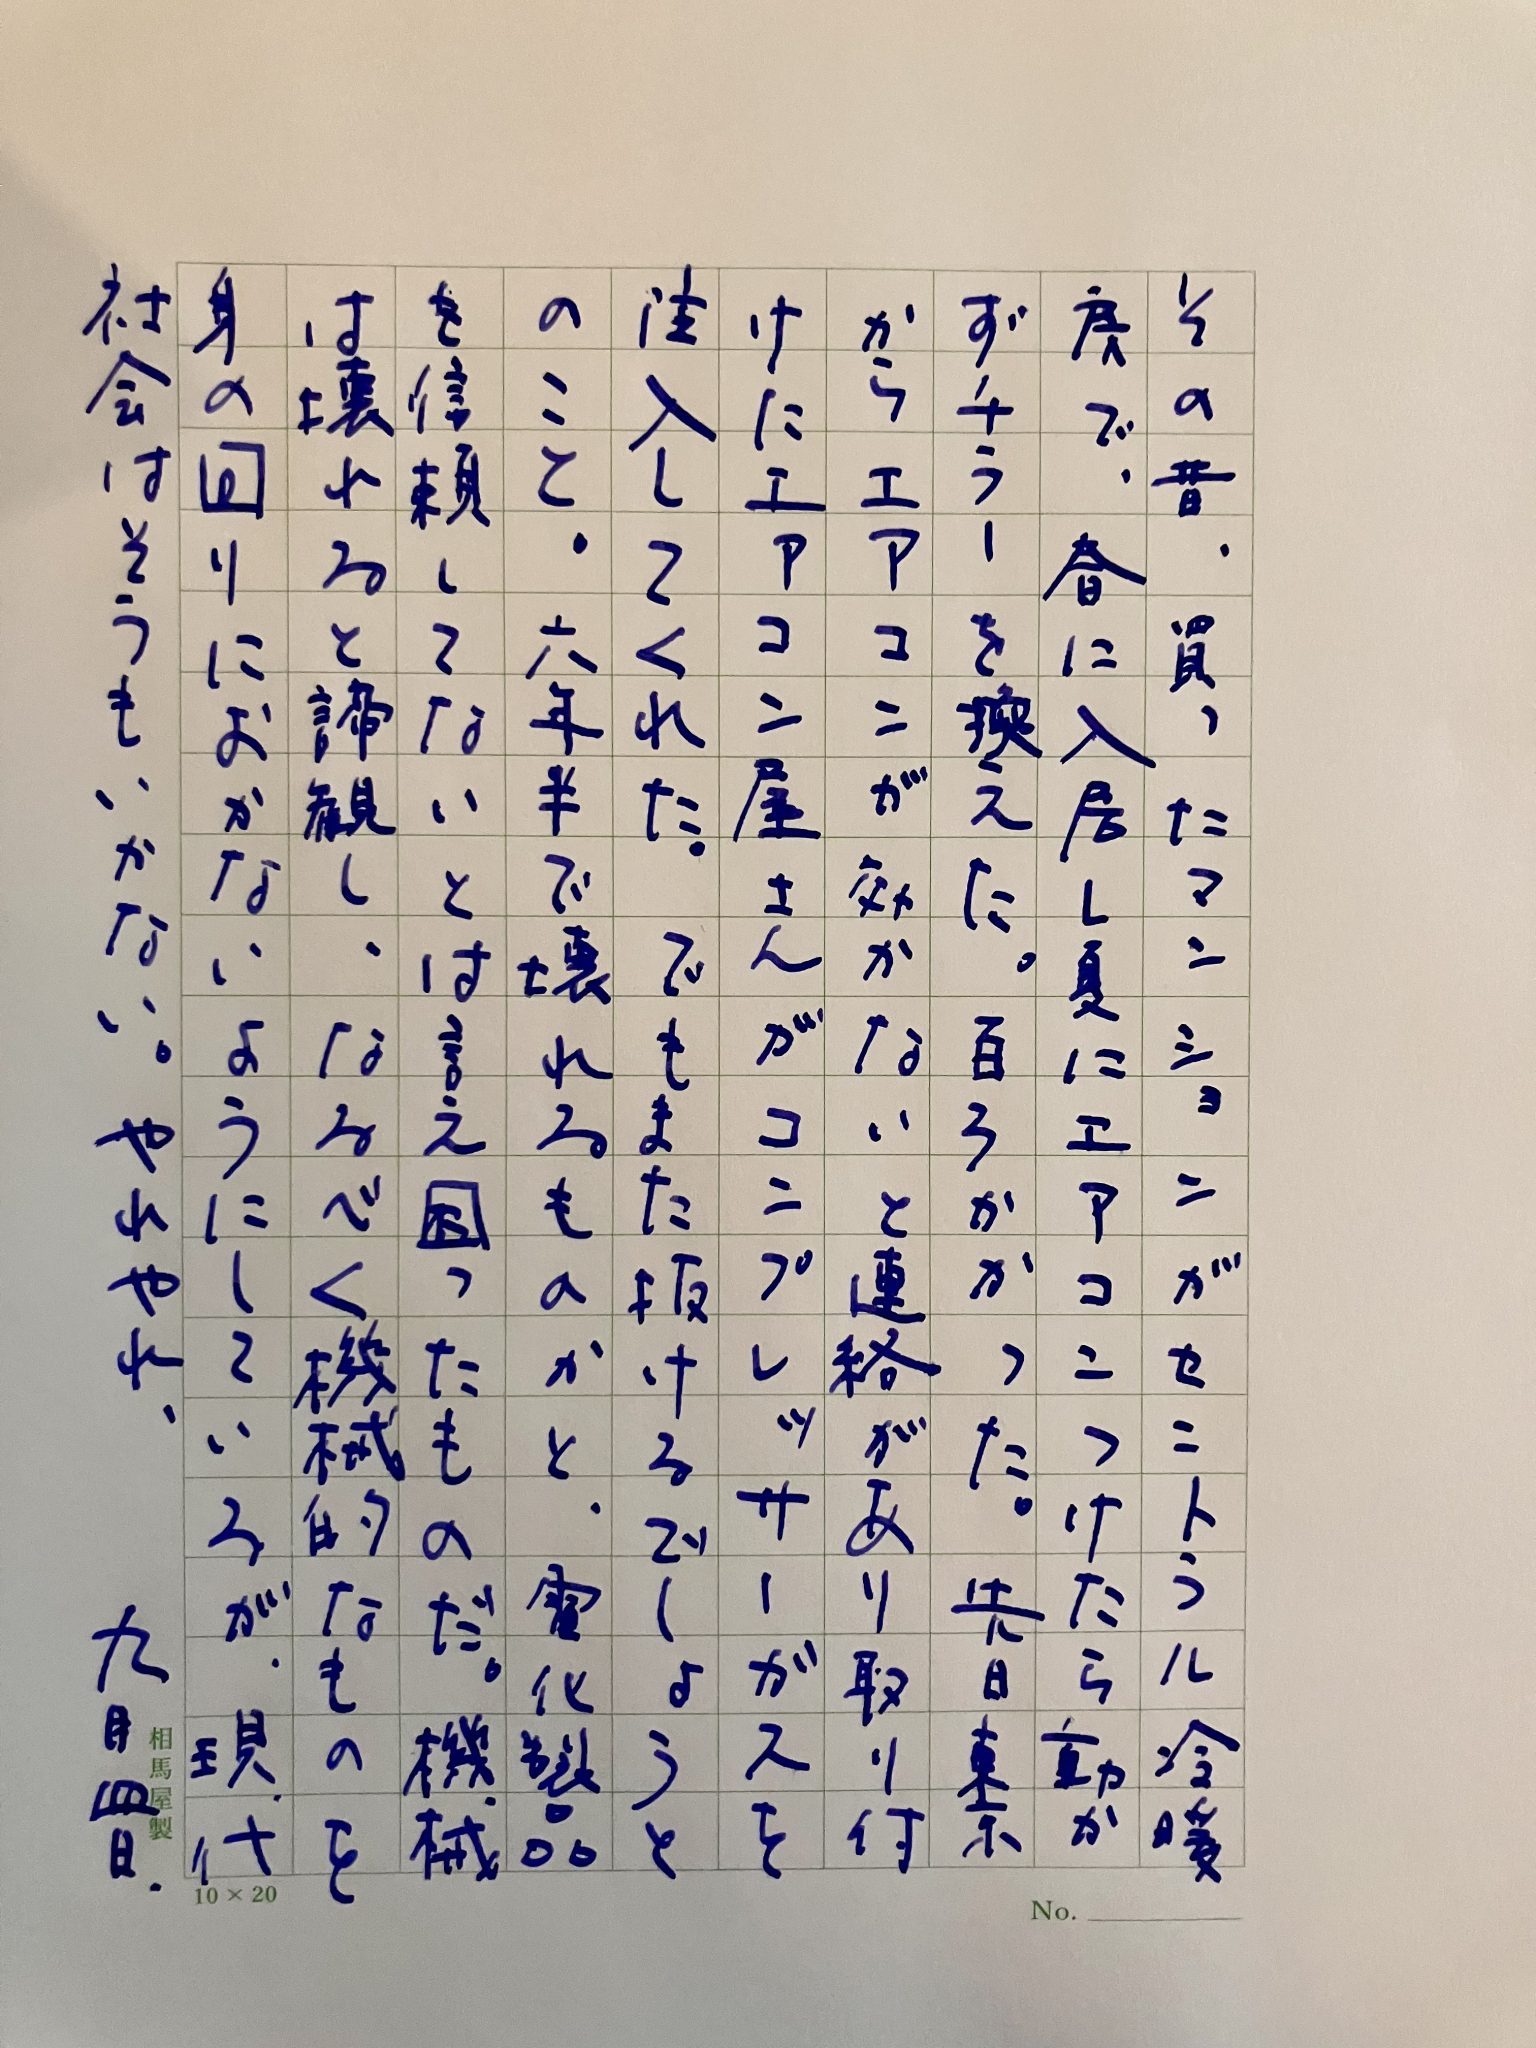 その昔、買ったマンションがセントラル冷暖
房で、春に入居し夏にエアコンつけたら動か
ずチラーを換えた。百万かかった。先日東京
からエアコンが効かないと連絡があり取り付
けにエアコン屋さんがコンプレッサーガスを
注入してくれた。でもまた抜けるでしょうと
のこと。六年半で壊れるものかと、電化製品
を信頼してないとは言え困ったものだ。機械
は壊れると諦観し、なるべく機械的なものを
身の回りにおかないようにしているが、現代
社会はそうもいかない。やれやれ、 九月四日.
相馬屋製
10×20
No.